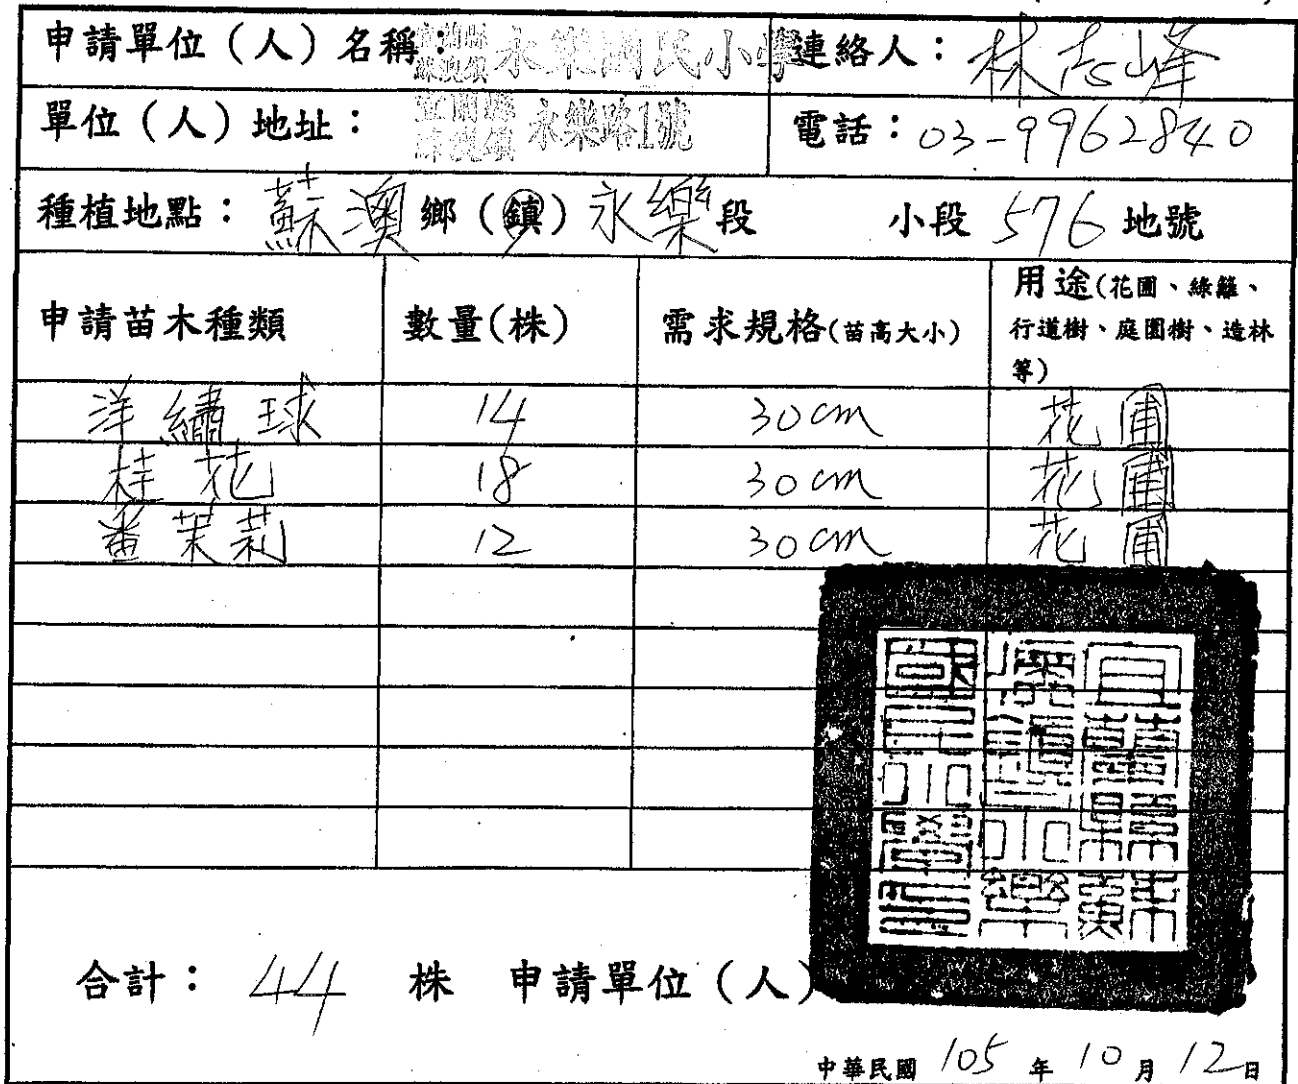 申請單位（人）名稱：宜蘭縣蘇澳鎮永樂國民小學 連絡人：林志峰
單位（人）地址：宜蘭縣蘇澳鎮永樂路1號 電話：03-9962840
種植地點：蘇澳鄉（鎮）永樂段 小段 576 地號
申請苗木種類 數量(株) 需求規格(苗高大小) 用途(花圃、綠籬、
行道樹、庭園樹、造林
等)
洋繡球 14 30cm 花圃
桂花 18 30cm 花圃
番茉莉 12 30cm 花圃
合計：44 株 申請單位（人）
中華民國 105 年 10 月 12 日